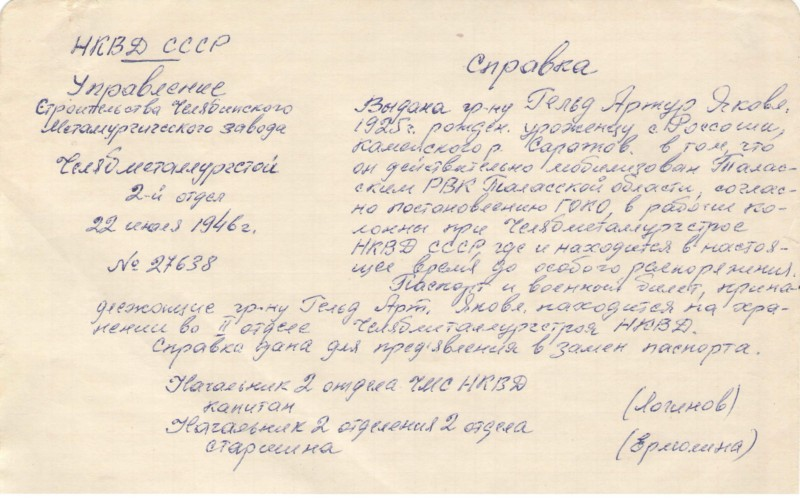 НКВД СССР
Управление
Строительства Челябинского
Металургического завода
Челябметаллургстой
2-й отдел
22 июля 1946г.
№ 27638
Справка
Выдана гр-ну Гельд Артур Якове.
1925г. рожден. уроженцу с. Россоши,
Каменского р. Саратов. в том, что
он действительно мобилизован Талас-
ским РВК Таласской области, соглас-
но постановлению ГОКО, в рабочие ко-
лонны при Челябметаллургстрое
НКВД СССР, где и находится в настоя-
щее время до особого распоряжения.
Паспорт и военный билет, прина-
длежащие гр-ну Гельд Арт. Якове. находится на хра-
нении во II отделе Челябметаллургстроя НКВД.
Справка дана для пред'явления в замен паспорта.
Начальник 2 отдела ЧМС НКВД
капитан (Логинов)
Начальник 2 отделения 2 отдела
старшина (Ермолина)